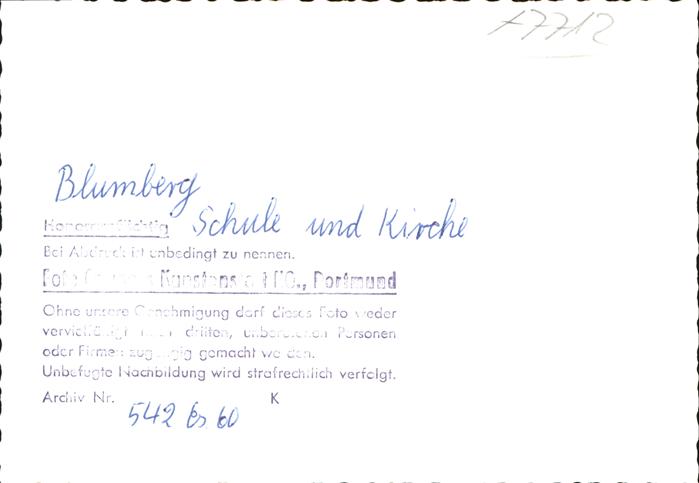 +7712
Blumberg
Schule und Kirche
Honorarpflichtig
Bei Abdruck ist unbedingt zu nennen.
Foto Kunstanstalt KG., Dortmund
Ohne unsere Genehmigung darf dieses Foto weder
vervielfältigt noch dritten, unberufenen Personen
oder Firmen zugängig gemacht werden.
Unbefugte Nachbildung wird strafrechtlich verfolgt.
Archiv Nr. K
542 60